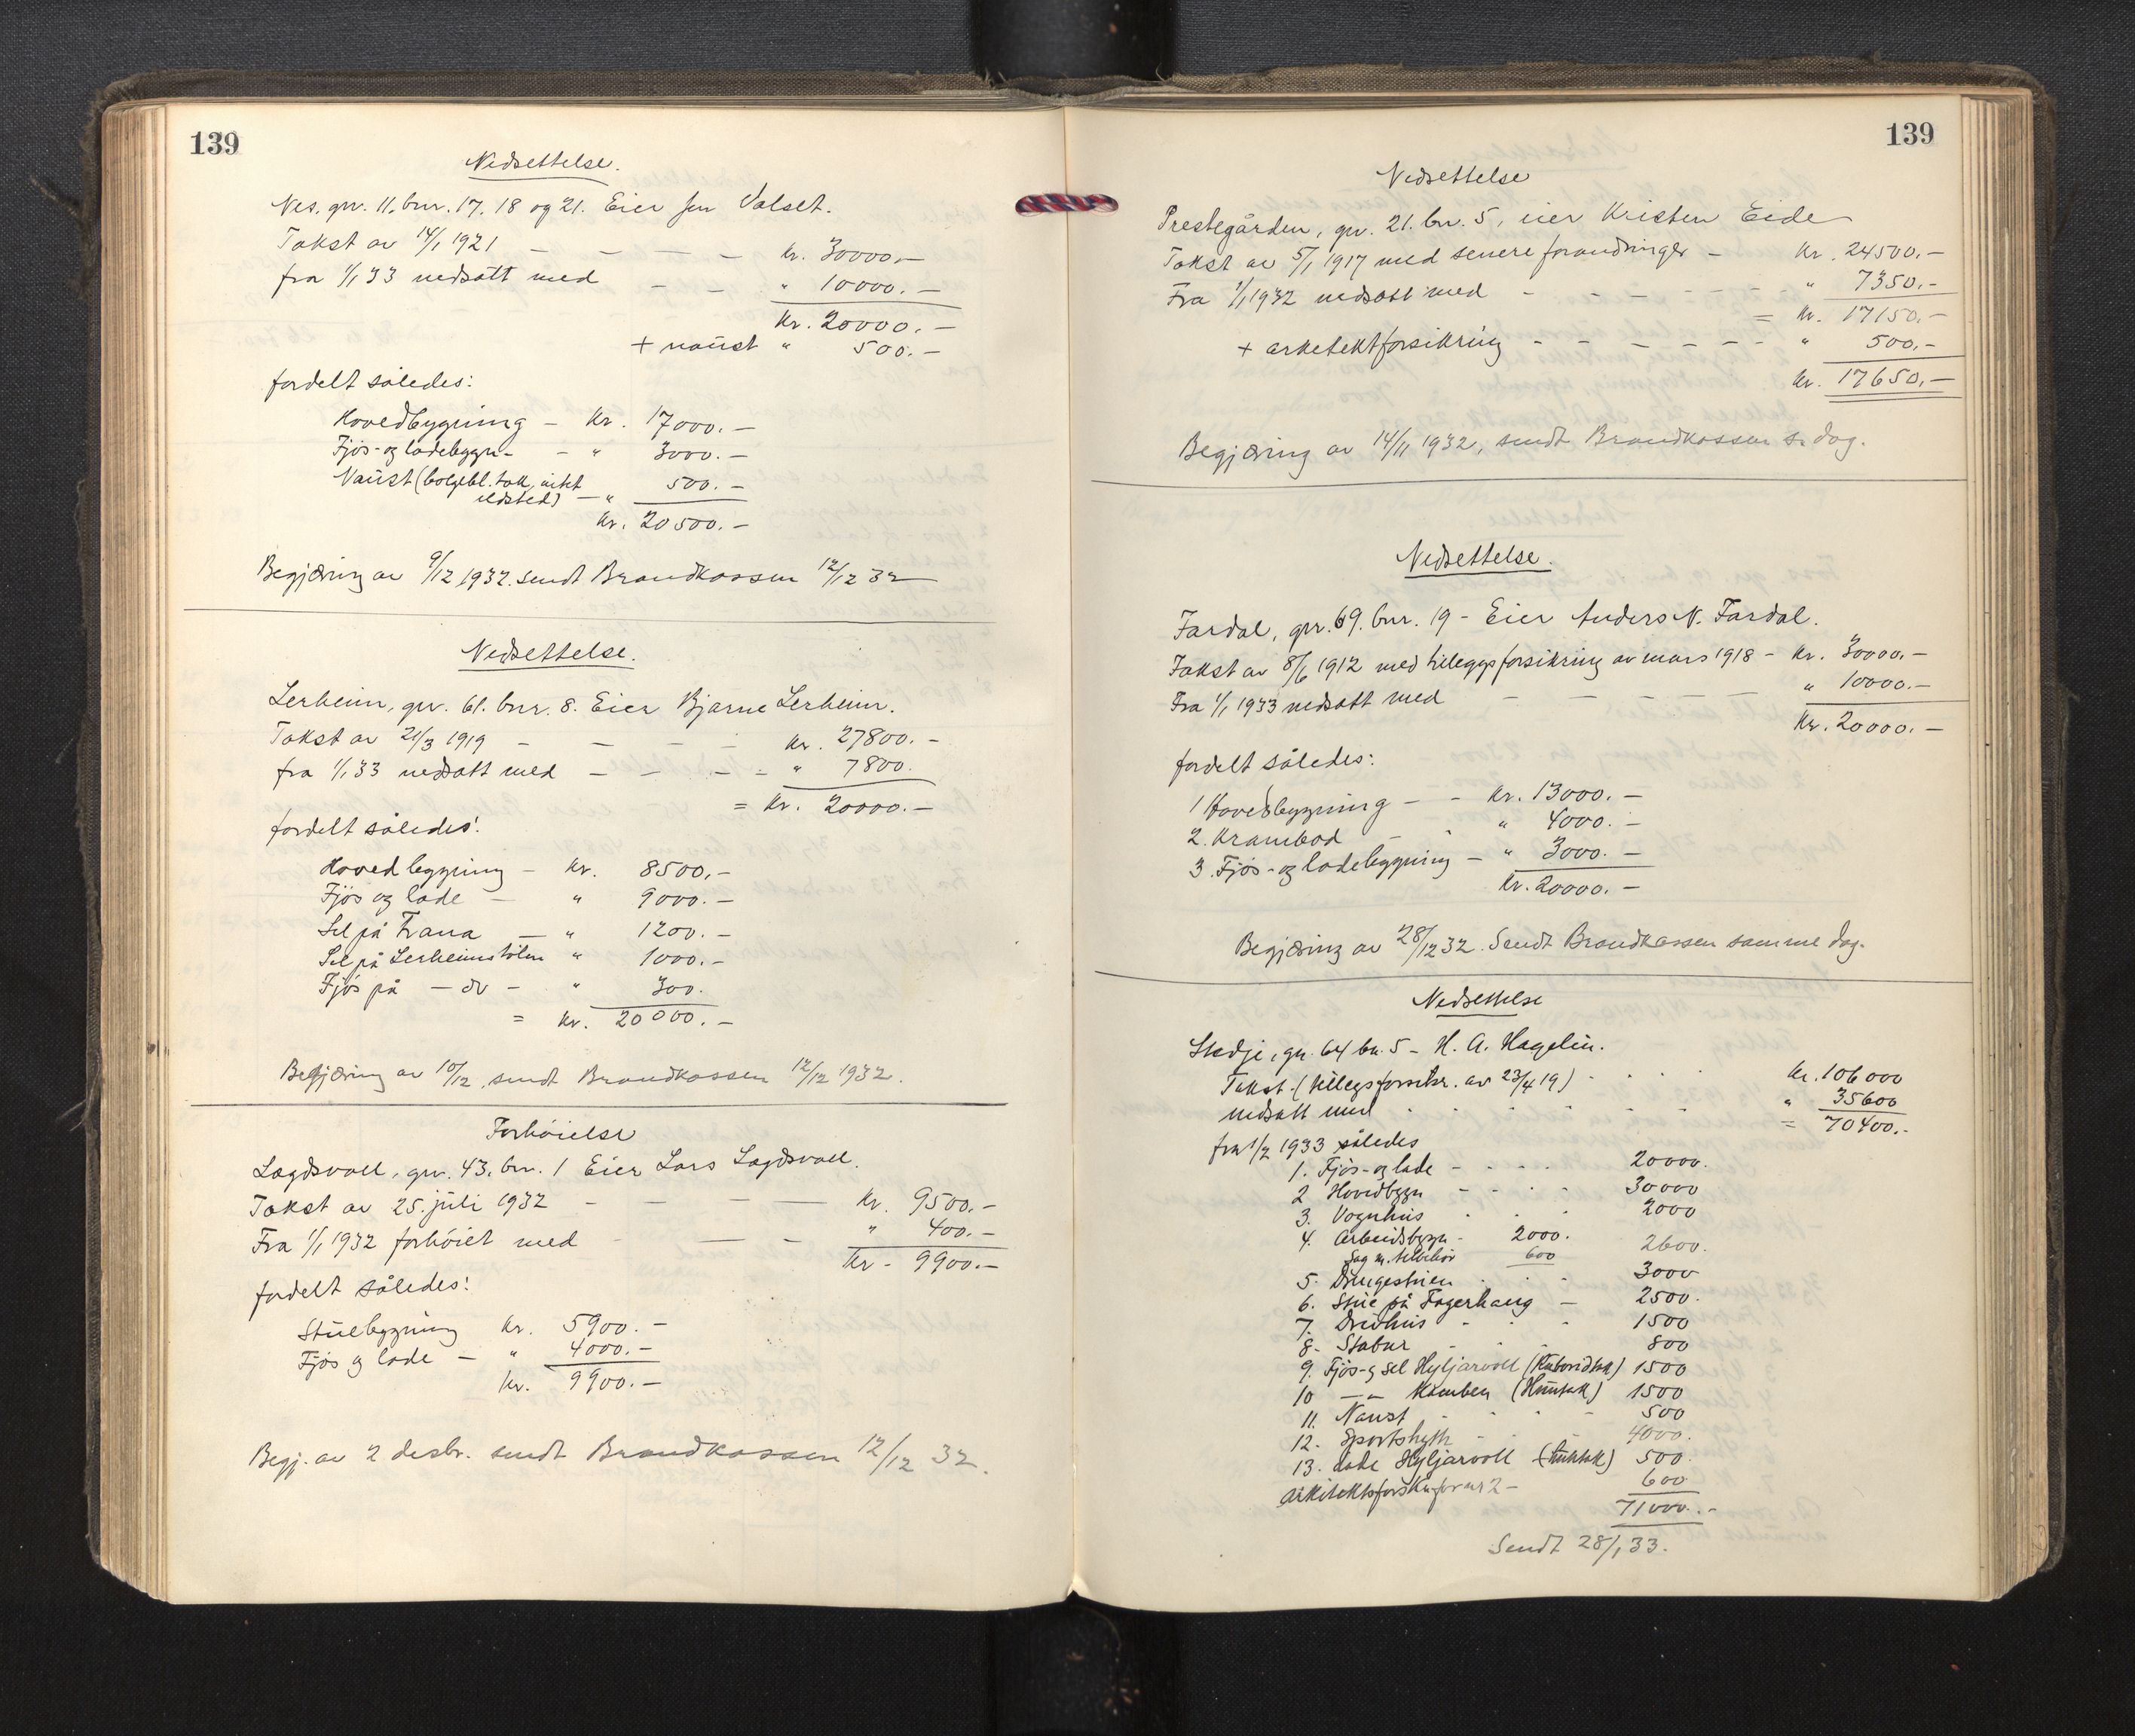 139
Nedsettelse.
Nes. gnr. 11. bnr. 17. 18 og 21. Eier Jon Valset.
Takst av 14/1 1921 — — — — kr. 30000.—
fra 1/1 33 nedsatt med — — " 10000.—
Kr. 20000.—
+ naust " 500.—
fordelt således:
Hovedbygning — Kr. 17000.—
Fjøs- og ladebygn. — " 3000.—
Naust (bølgebl. tak, intet
ildsted) — " 500.—
Kr. 20500.—
Begjæring av 9/12 1932. sendt Brandkassen 12/12 32
Nedsettelse.
Lerheim, gnr. 61. bnr. 8. Eier Bjarne Lerheim.
Takst av 21/3 1919 — — — — kr. 27800.—
fra 1/1 33 nedsatt med — — — " 7800.
= Kr. 20000.—
fordelt således:
Hovedbygning — Kr. 8500,—
Fjøs og lade — " 9000.—
Sel på Frana — " 1200.—
Sel på Lerheimstølen " 1000.—
Fjøs på — do — " 300.
= Kr. 20000.—
Begjæring av 10/12, sendt Brandkassen 12/12 1932.
Forhøielse
Lagdsvoll, gnr. 43. bnr. 1 Eier Lars Lagdsvoll.
Takst av 25. juli 1932 — — — — Kr. 9500.—
Fra 1/1 1932 forhøiet med — — " 400.—
Kr. 9900.—
fordelt således:
Stuebygning Kr. 5900.—
Fjøs og lade — " 4000.—
Kr. 9900.—
Begj. av 2 desbr. sendt Brandkassen 12/12 32.
139
Nedsettelse
Prestegården, gnr. 21. bnr. 5, eier Kristen Eide
Takst av 5/1 1917 med senere forandringer — Kr. 24500.—
Fra 1/1 1932 nedsatt med — — — — " 7350.—
= Kr. 17150.—
+ arketektforsikring — — — — — " 500.—
Kr. 17650.—
Begjæring av 14/11 1932, sendt Brandkassen s. dag.
Nedsettelse.
Fardal, gnr. 69. bnr. 19 - Eier Anders N. Fardal.
Takst av 8/6 1912 med tilleggsforsikring av mars 1918 — Kr. 30000.—
Fra 1/1 1933 nedsatt med — — — — — " 10000.—
Kr. 20000.—
fordelt således:
1 Hovedbygning — — Kr. 13000.—
2. Krambod — — " 4000.—
3. Fjøs- og ladebygning — " 3000.—
Kr. 20000.—
Begjæring av 28/12 32. Sendt Brandkassen samme dag.
Nedsettelse
Stedje, gn. 64 bn. 5 - H. A. Hagelin.
Takst. (tillegsforsikr. av 23/4 19) . . . . Kr. 106000
nedsatt med . . . . . . " 35600
= 70400.-
fra 1/2 1933 således
1. Fjøs- og lade - . . . 20000.
2 Hovedbygn - . . . 30000
3. Vognhus . . . 2000
4. Arbeidsbygn - 2000.
Sag m. tilbehør 600 2600.
5. Drengestuen . . . 3000
6. Stue på Fagerhaug — 2500.
7. Drivhus . . . 1500
8. Stabur . . . 800
9. Fjøs- og sel Hyljarvoll ( ) 1500
10 — " — Kamben ( ) 1500
11. Naust . . . . 500
12. Sportshytte . . . 4000.
13. Lade Hyljarvoll ( ) 500.
Arkitektsforsikr for nr 2 — 600
71000.-
Sendt 28/1 33.